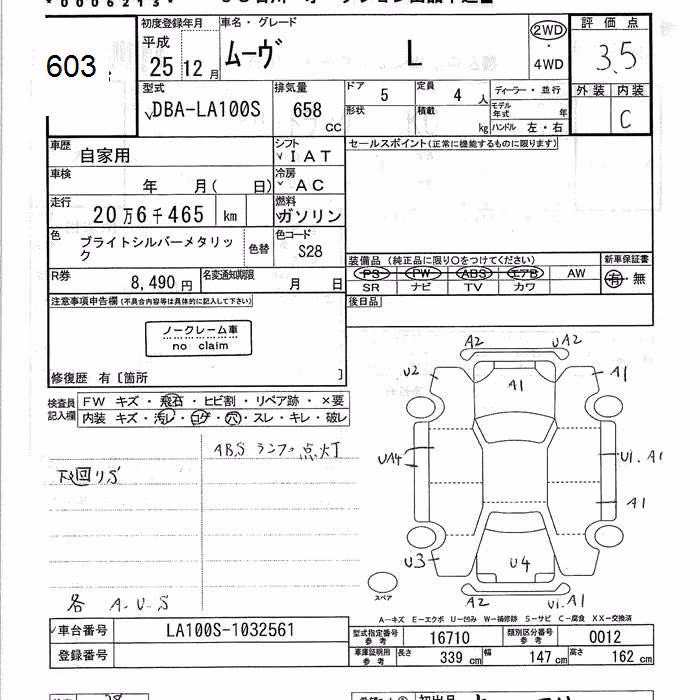 *0006213*
603
初度登録年月
平成
25 12月
車名・グレード
ムーヴ L
2WD
・
4WD
評価点
3.5
外装 内装
C
型式
DBA-LA100S
排気量
658
CC
ドア 5
定員 4 人
形状
積載 kg
ディーラー・並行
モデル年式 年
ハンドル 左・右
車歴
自家用
シフト
IAT
セールスポイント(正常に機能するものに限ります)
車検
年 月( 日)
冷房
AC
走行
20万6千465 km
燃料
ガソリン
色
ブライトシルバーメタリック
色替
色コード
S28
装備品(純正品に限り○をつけてください)
新車保証書
PS PW ABS エアB AW
有・無
SR ナビ TV カワ
R券
8,490円
名変通知期限
月 日
後日品
注意事項申告欄(不具合内容等は具体的に記入して下さい)
ノークレーム車
no claim
修復歴 有〔箇所 〕
検査員記入欄
FW キズ・飛石・ヒビ割・リペア跡・×要
内装 キズ・汚レ・コゲ・穴・スレ・キレ・破レ
ABSランプ点灯
下回りS
各 A.U.S
A2 UA2
U2 A1 A1
UA4 U1.A1
A1
U3 U4
A2 U1.A1
スペア
A-キズ E-エクボ U-凹み W-補修跡 S-サビ C-腐食 XX-交換済
車台番号
LA100S-1032561
登録番号
型式指定番号参考
16710
類別区分番号参考
0012
車庫証明用参考
長さ 339cm 幅 147cm 高さ 162cm